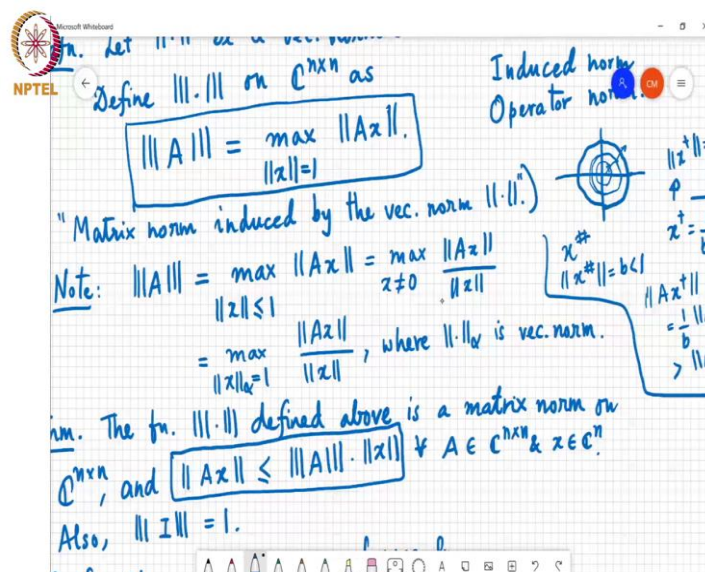 Microsoft Whiteboard
NPTEL
Let ||·|| be a vec. norm
Define |||·||| on ℂⁿˣⁿ as
|||A||| = max ||Ax||.
||x||=1
Induced norm
Operator norm.
CM
"Matrix norm induced by the vec. norm ||·||.")
Note: |||A||| = max ||Ax|| = max ||Ax||
||x||≤1 x≠0 ||x||
= max ||Ax|| / ||x||, where ||·||α is vec. norm.
||x||α=1
x#
||x#||=b<1
||x†||=
x†=
||Ax†||
= 1/b ||
> ||
The fn. |||·||| defined above is a matrix norm on
ℂⁿˣⁿ, and ||Ax|| ≤ |||A|||·||x|| ∀ A ∈ ℂⁿˣⁿ & x ∈ ℂⁿ.
Also, |||I||| = 1.